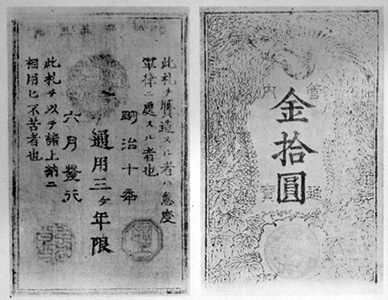 金拾圓
管内
此札ヲ贋造スル者ハ急度
軍律ニ處スル者也
明治十年
通用三ヶ年限
六月發行
此札ヲ以テ諸上納ニ
相用ヒ不苦者也